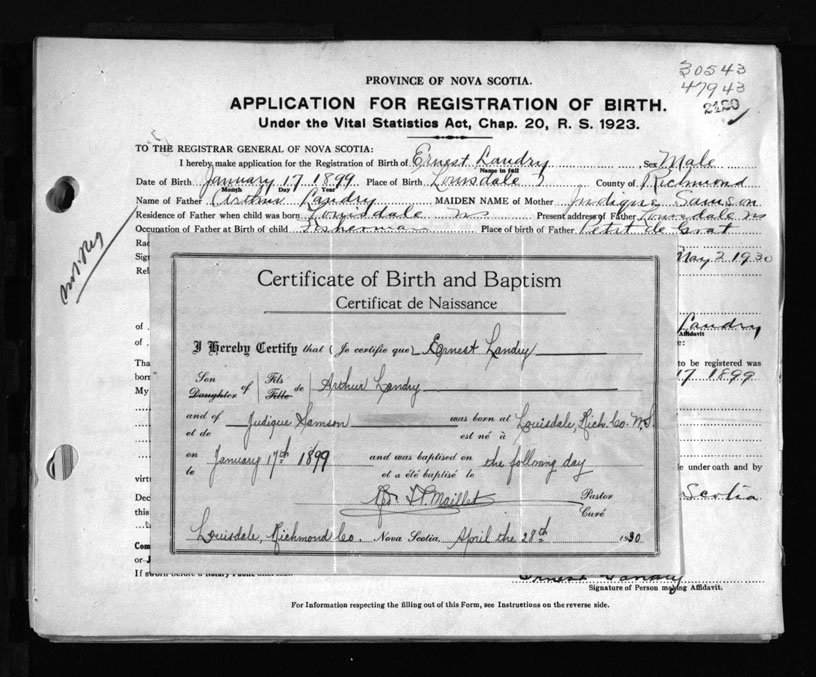 30543
47943
2120
PROVINCE OF NOVA SCOTIA.
APPLICATION FOR REGISTRATION OF BIRTH.
Under the Vital Statistics Act, Chap. 20, R. S. 1923.
TO THE REGISTRAR GENERAL OF NOVA SCOTIA:
I hereby make application for the Registration of Birth of Ernest Landry Sex Male
Name in full
Date of Birth January 17 1899 Place of Birth Louisdale County of Richmond
Month Day Year
Name of Father Arthur Landry MAIDEN NAME of Mother Judique Samson
Residence of Father when child was born Louisdale NS Present address of Father Louisdale NS
Occupation of Father at Birth of child Fisherman Place of birth of Father Petit de Grat
Rac
Sig May 2 1930
Rel
Certificate of Birth and Baptism
Certificat de Naissance
of Landry
Affidavit
of e:
I Hereby Certify that (Je certifie que) Ernest Landry
Tha to be registered was
born 17 1899
My
Son Fils
Daughter of Fille de Arthur Landry
and of Judique Samson was born at Louisdale, Rich. Co. N.S.
et de est né à
on January 17th 1899 and was baptised on the following day
le et a été baptisé le
virtu le under oath and by
Geo. L. Maillet Pastor
Curé
Dec Scotia
this
Louisdale, Richmond Co. Nova Scotia, April the 28th 1930
Com
or J
If sworn before a Notary Public
Ernest Landry
Signature of Person making Affidavit.
For Information respecting the filling out of this Form, see Instructions on the reverse side.